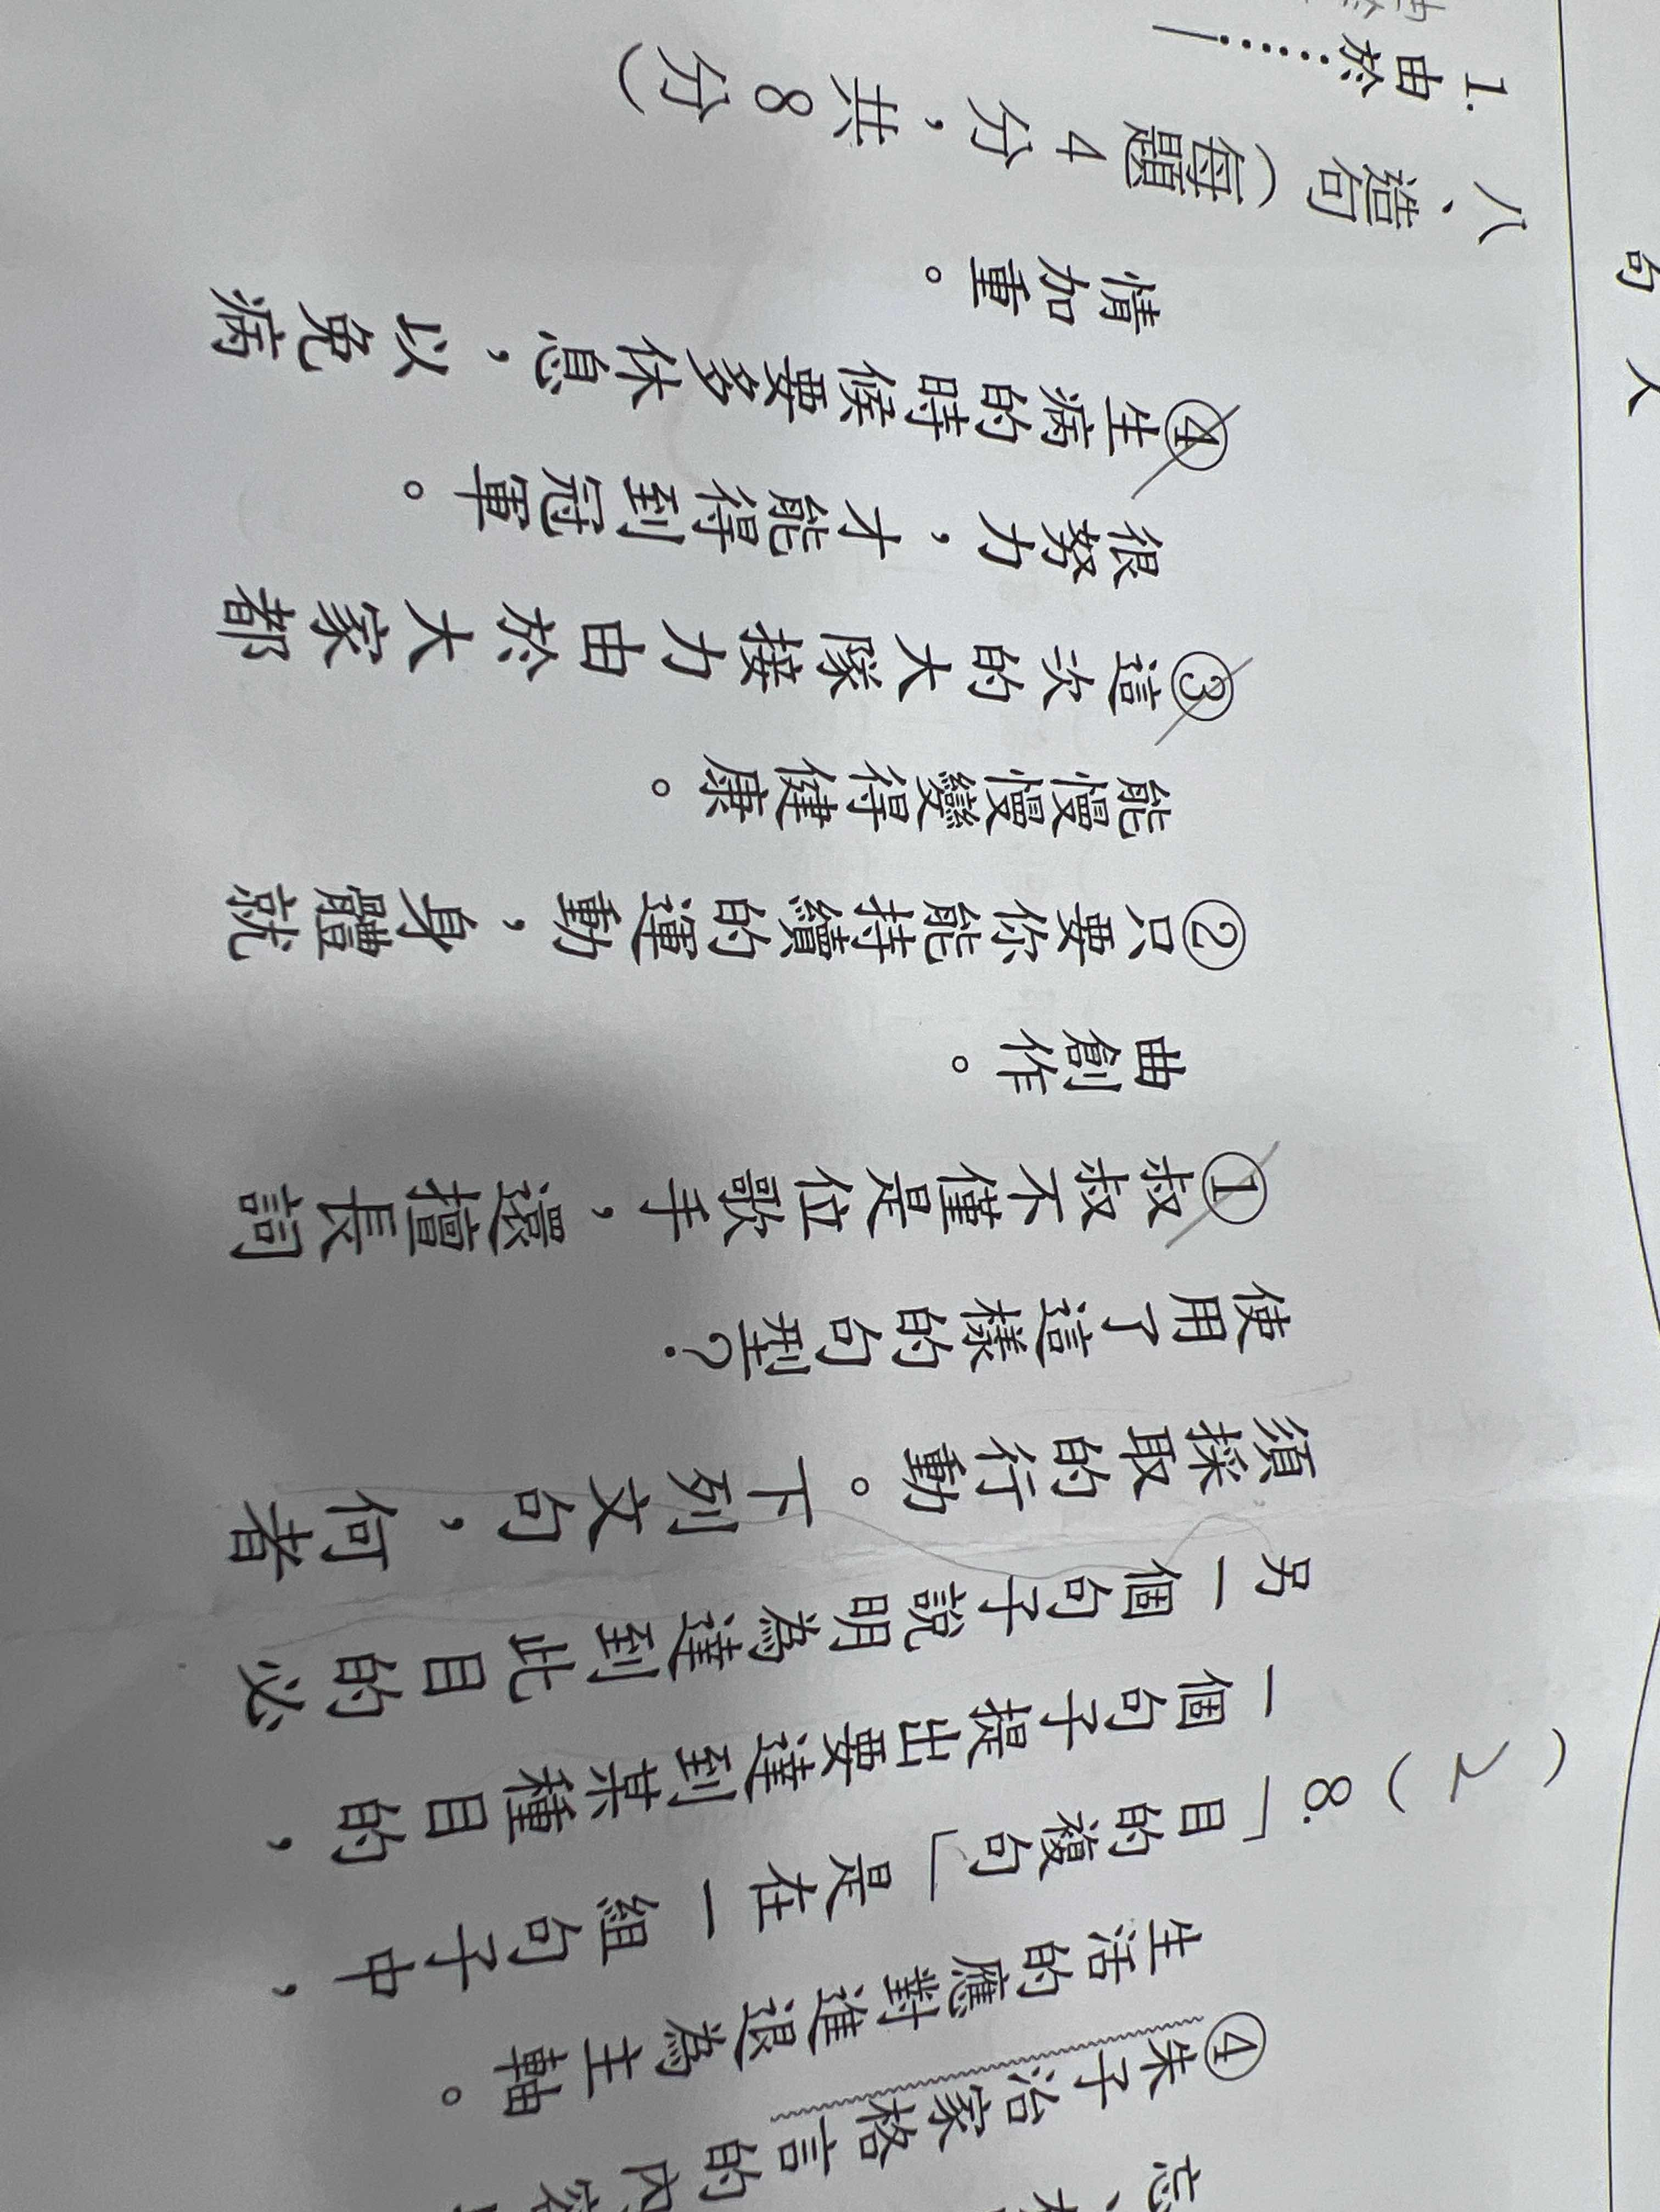 ④朱子治家格言的內容
生活的應對進退為主軸。
(2)8.「目的複句」是在一組句子中，
一個句子提出要達到某種目的，
另一個句子說明為達到此目的必
須採取的行動。下列文句，何者
使用了這樣的句型？
①叔叔不僅是位歌手，還擅長詞
曲創作。
②只要你能持續的運動，身體就
能慢慢變得健康。
③這次的大隊接力由於大家都
很努力，才能得到冠軍。
④生病的時候要多休息，以免病
情加重。
八、造句（每題4分，共8分）
1.由於……